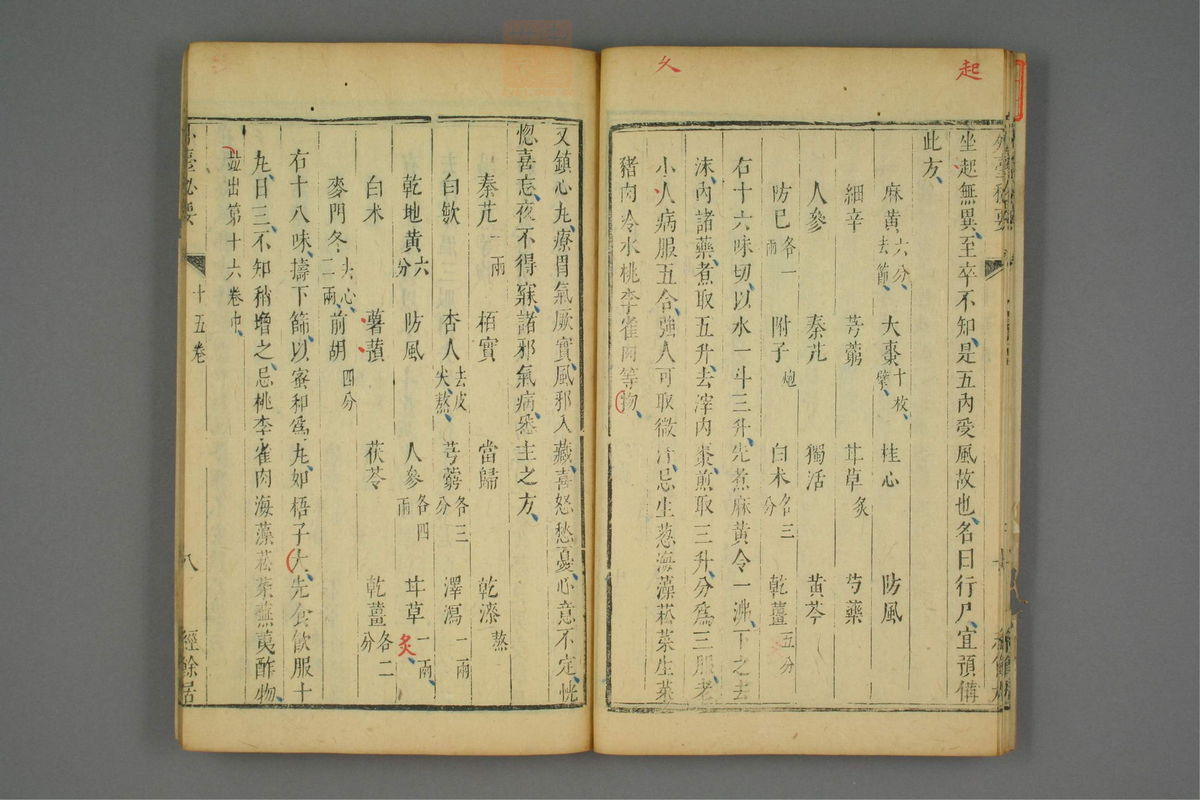 起
夂
外臺秘要
坐起無異至卒不知是五內受風故也名曰行尸宜預備
此方
麻黃六分去節 大棗十枚擘 桂心 防風
細辛 芎藭 甘草炙 芍藥
人參 秦艽 獨活 黃芩
防巳各一兩 附子炮 白朮各三分 乾薑五分
右十六味切以水一斗三升先煮麻黃令一沸下之去
沫內諸藥煮取五升去滓內棗煎取三升分爲三服老
小人病服五合強人可取微汗忌生葱海藻菘菜生菜
豬肉冷水桃李雀肉等物
又鎮心丸療胃氣厥實風邪入藏喜怒愁憂心意不定恍
惚喜忘夜不得寐諸邪氣病悉主之方
秦艽一兩 栢實 當歸 乾漆熬
白斂 杏人去皮尖熬 芎藭各三分 澤瀉一兩
乾地黃六分 防風 人參各四兩 甘草一兩炙
白朮 薯蕷 茯苓 乾薑各二分
麥門冬去心二兩 前胡四分
右十八味擣下篩以蜜和爲丸如梧子大先食飲服十
丸日三不知稍增之忌桃李雀肉海藻菘菜蕪荑酢物
並出第十六卷中
外臺秘要 十五卷 八 經餘居